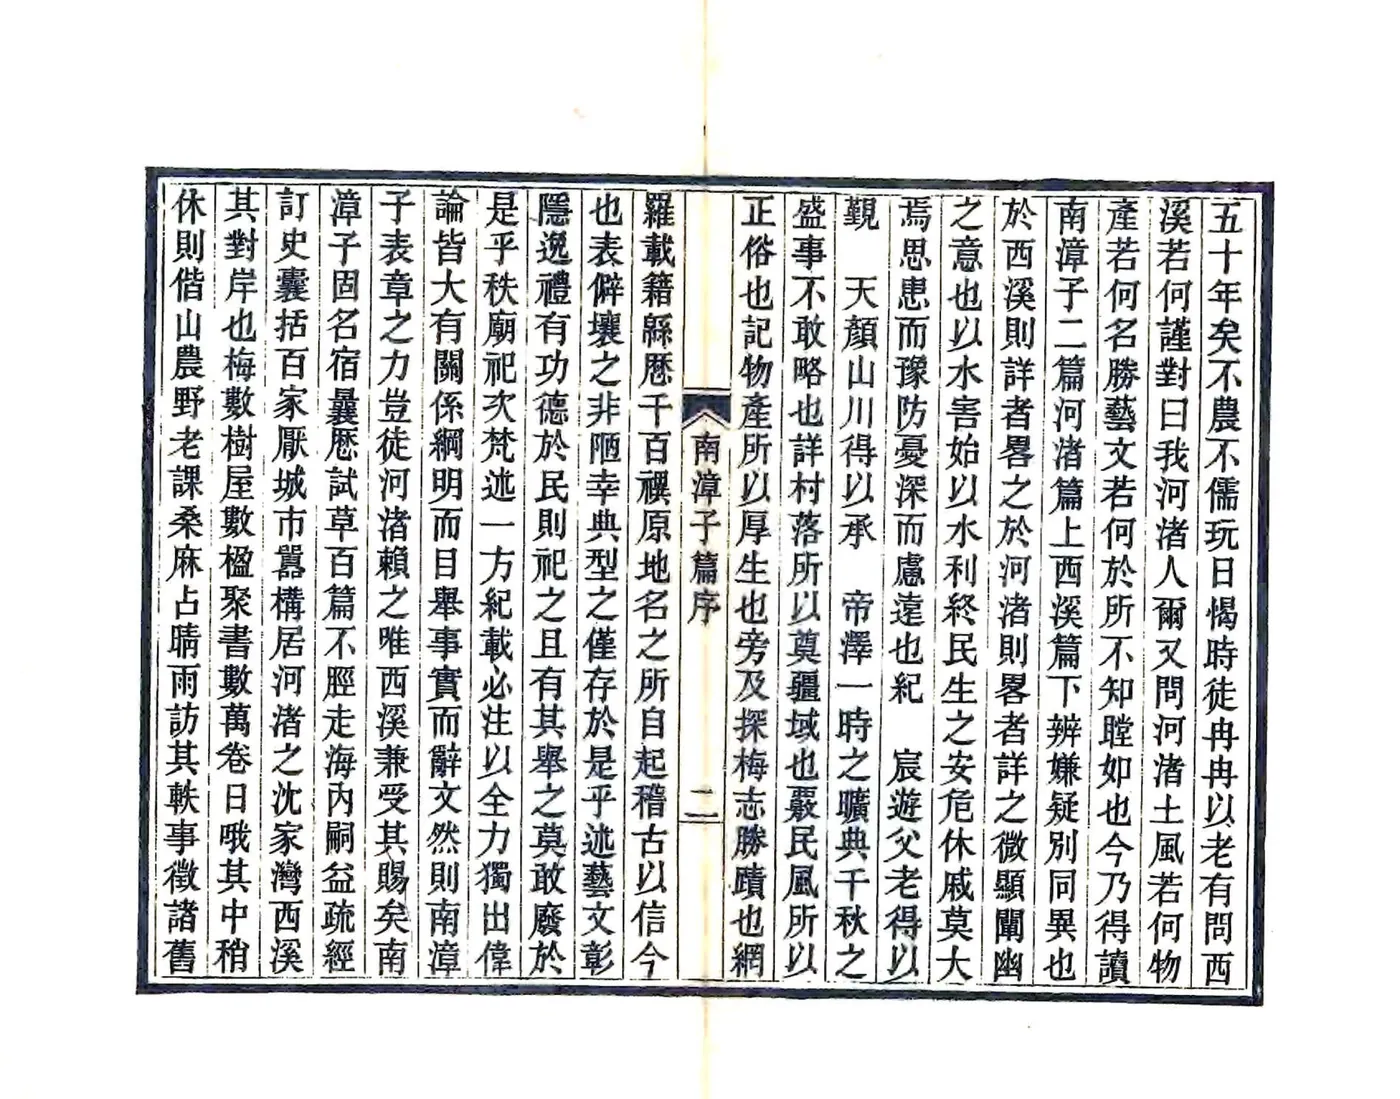 五十年矣不農不儒玩日愒時徒冉冉以老有問西
溪若何謹對曰我河渚人爾又問河渚土風若何物
產若何名勝藝文若何於所不知瞠如也今乃得讀
南漳子二篇河渚篇上西溪篇下辨嫌疑別同異也
於西溪則詳者畧之於河渚則畧者詳之微顯闡幽
之意也以水害始以水利終民生之安危休戚莫大
焉思患而豫防憂深而慮遠也紀　宸遊父老得以
覲　天顏山川得以承　帝澤一時之曠典千秋之
盛事不敢略也詳村落所以奠疆域也覈民風所以
正俗也記物產所以厚生也旁及探梅志勝蹟也網
南漳子篇序　二
羅載籍緜歷千百禩原地名之所自起稽古以信今
也表僻壤之非陋幸典型之僅存於是乎述藝文彰
隱逸禮有功德於民則祀之且有其舉之莫敢廢於
是乎秩廟祀次梵述一方紀載必注以全力獨出偉
論皆大有關係綱明而目舉事實而辭文然則南漳
子表章之力豈徒河渚賴之唯西溪兼受其賜矣南
漳子固名宿曩歷試草百篇不脛走海內嗣益疏經
訂史囊括百家厭城市囂構居河渚之沈家灣西溪
其對岸也梅數樹屋數楹聚書數萬卷日哦其中稍
休則偕山農野老課桑麻占晴雨訪其軼事徵諸舊